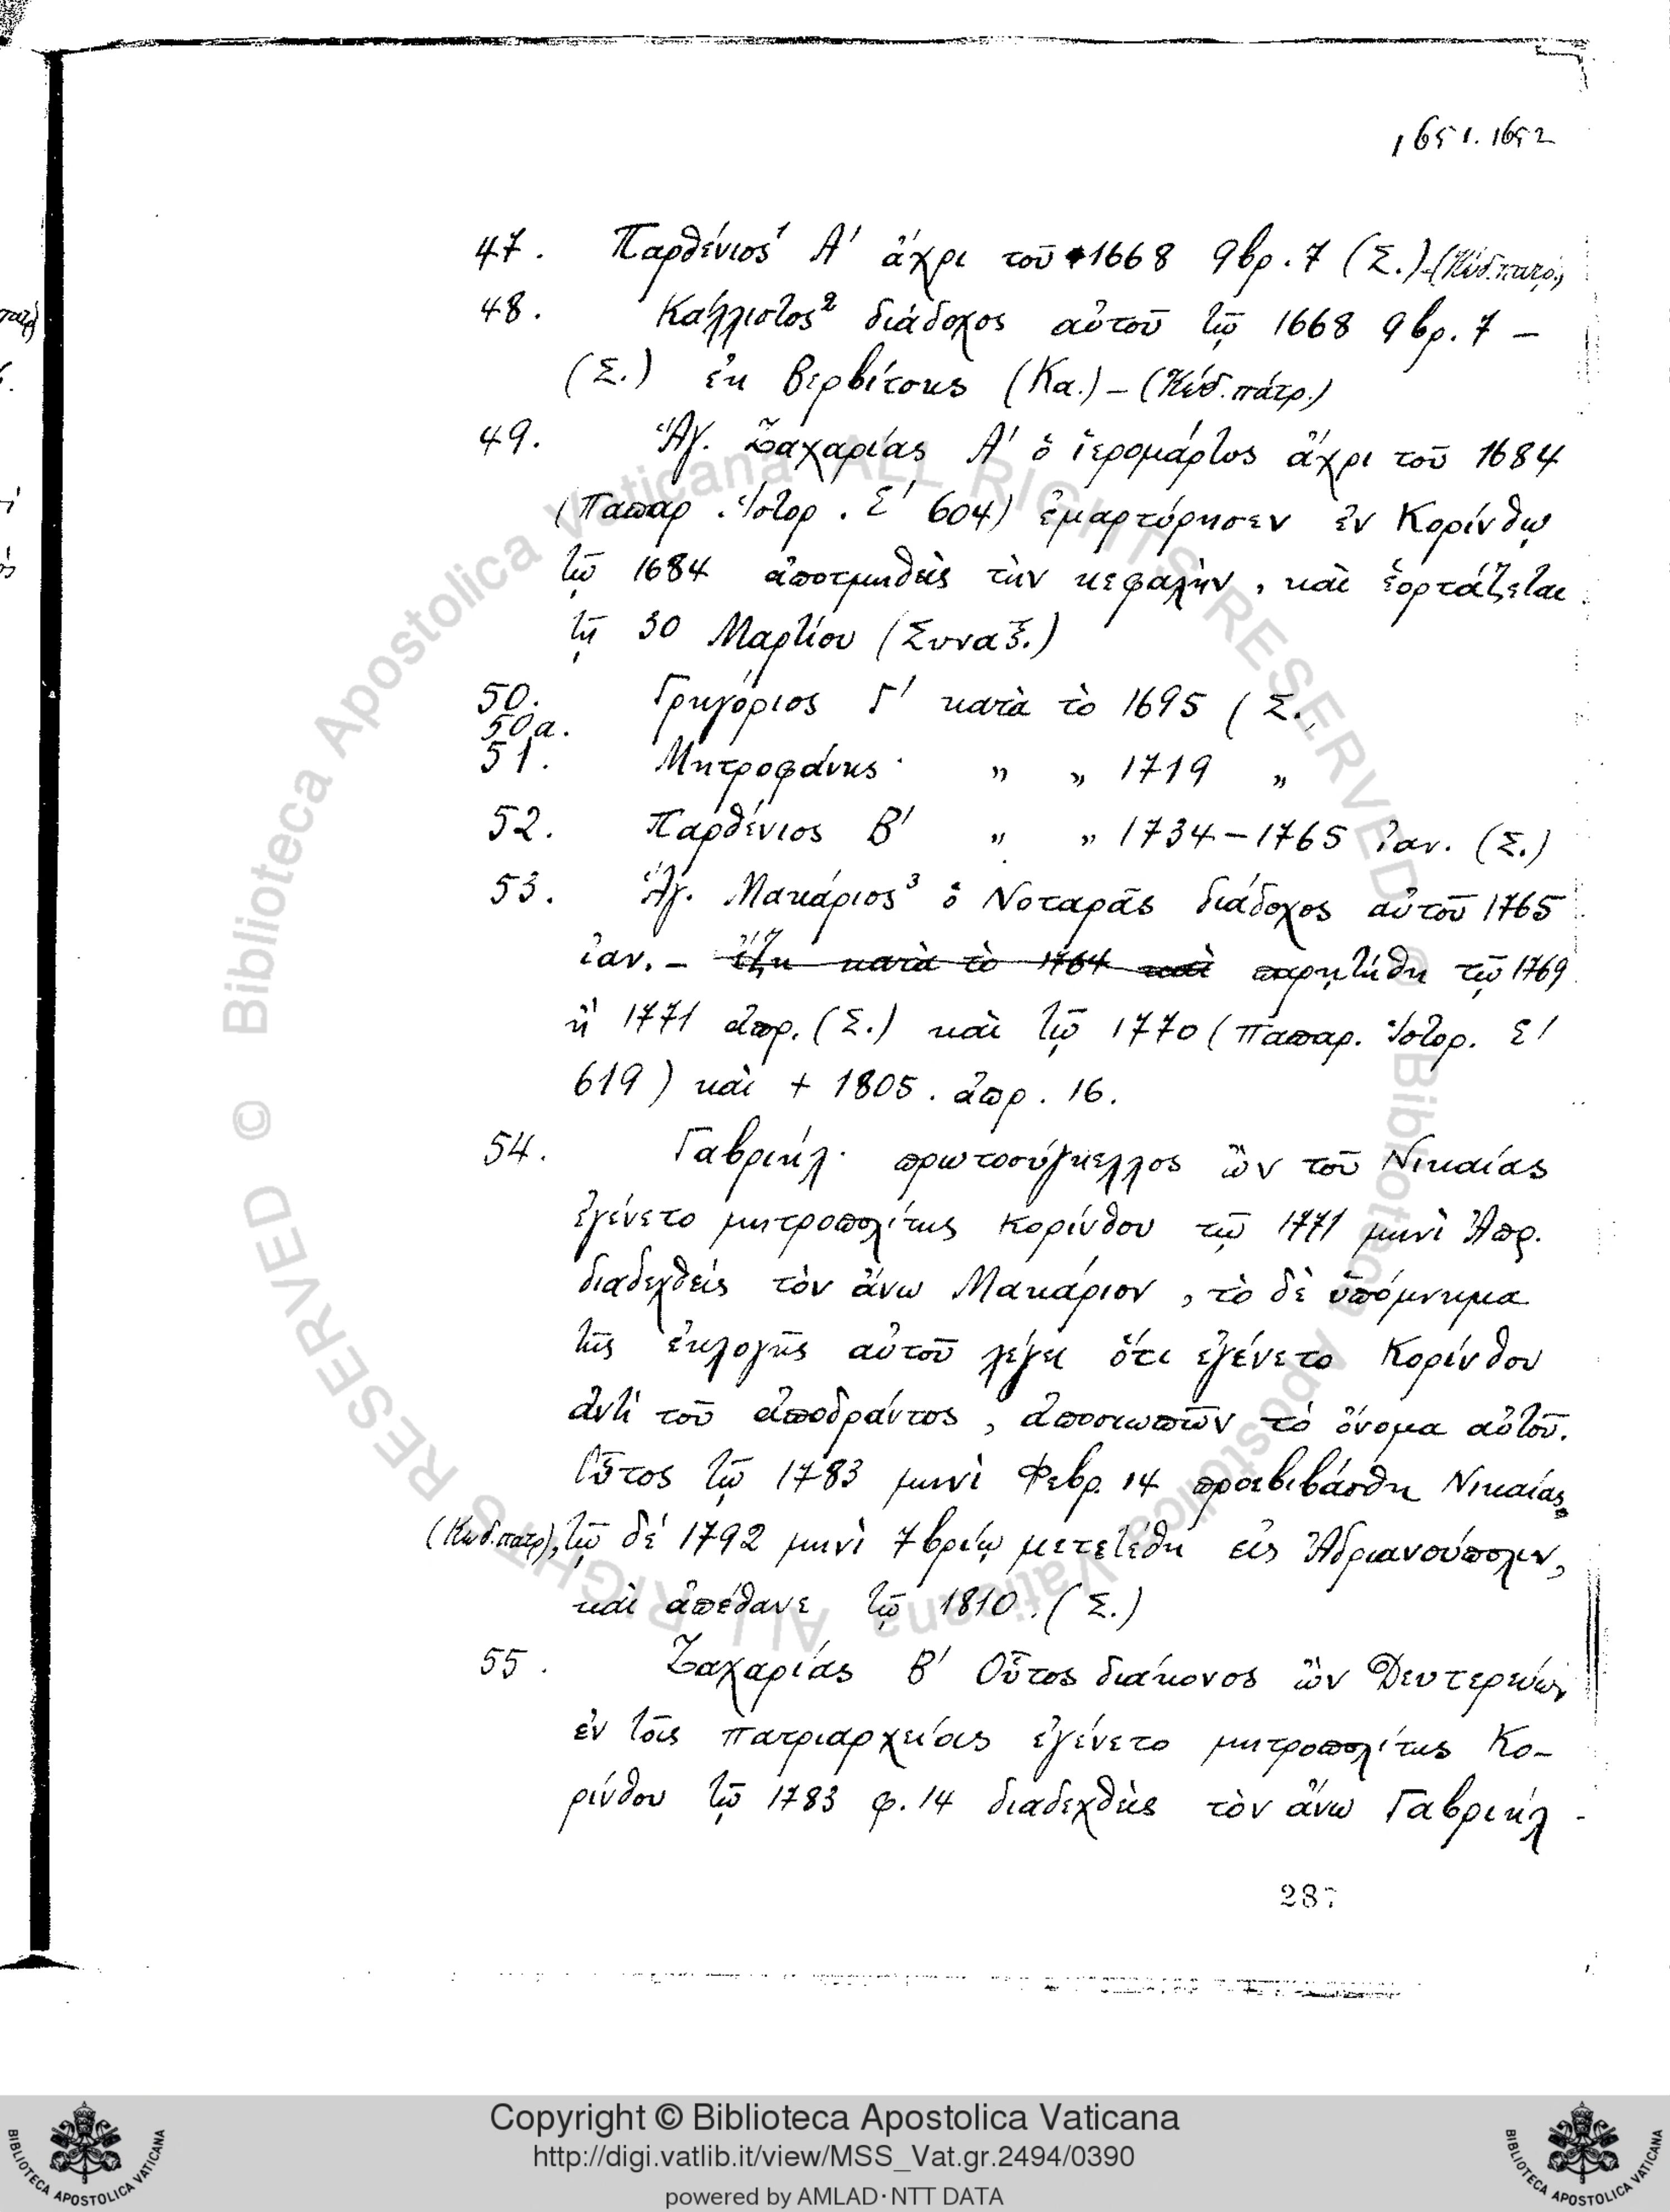 1651. 1652
47. Παρθένιος¹ Α' ἄχρι τοῦ 1668 9βρ. 7 (Σ.)-(Κώδ. πατρ.)
48. Κάλλιστος² διάδοχος αὐτοῦ τῷ 1668 9βρ. 7 –
(Σ.) ἐκ Βερβίτσης (Κα.) – (Κώδ. πάτρ.)
49. Ἅγ. Ζαχαρίας Α' ὁ ἱερομάρτυς ἄχρι τοῦ 1684
(Παπαρ. Ἱστορ. Ε' 604) ἐμαρτύρησεν ἐν Κορίνθῳ
τῷ 1684 ἀποτμηθεὶς τὴν κεφαλὴν, καὶ ἑορτάζεται
τῇ 30 Μαρτίου (Συναξ.)
50. Γρηγόριος Γ' κατὰ τὸ 1695 (Σ.
50α.
51. Μητροφάνης · " " 1719 "
52. Παρθένιος Β' " " 1734 – 1765 ἰαν. (Σ.)
53. Ἅγ. Μακάριος³ ὁ Νοταρᾶς διάδοχος αὐτοῦ 1765
ἰαν. – ἔζη κατὰ τὸ 1764 καὶ παρῃτήθη τῷ 1769
ἢ 1771 ἀπρ. (Σ.) καὶ τῷ 1770 (Παπαρ. Ἱστορ. Ε'
619) καὶ + 1805. ἀπρ. 16.
54. Γαβριήλ · πρωτοσύγκελλος ὢν τοῦ Νικαίας
ἐγένετο μητροπολίτης Κορίνθου τῷ 1771 μηνὶ Ἀπρ.
διαδεχθείς τὸν ἄνω Μακάριον, τὸ δὲ ὑπόμνημα
τῆς ἐκλογῆς αὐτοῦ λέγει ὅτι ἐγένετο Κορίνθου
ἀντὶ τοῦ ἀποδράντος, ἀποσιωπῶν τὸ ὄνομα αὐτοῦ.
Οὗτος τῷ 1783 μηνὶ Φεβρ. 14 προεβιβάσθη Νικαίας
(Κωδ. πατρ), τῷ δέ 1792 μηνὶ 7βρίῳ μετετέθη εἰς Ἀδριανούπολιν,
καὶ ἀπέθανε τῷ 1810. (Σ.)
55. Ζαχαρίας Β' Οὗτος διάκονος ὢν Δευτερεύων
ἐν τοῖς πατριαρχείοις ἐγένετο μητροπολίτης Κο-
ρίνθου τῷ 1783 φ. 14 διαδεχθεὶς τὸν ἄνω Γαβριήλ -
287
© Biblioteca Apostolica Vaticana ALL RIGHTS RESERVED
© Biblioteca Apostolica Vaticana ALL RIGHTS RESERVED
Copyright © Biblioteca Apostolica Vaticana
http://digi.vatlib.it/view/MSS_Vat.gr.2494/0390
powered by AMLAD·NTT DATA
BIBLIOTECA APOSTOLICA VATICANA
BIBLIOTECA APOSTOLICA VATICANA